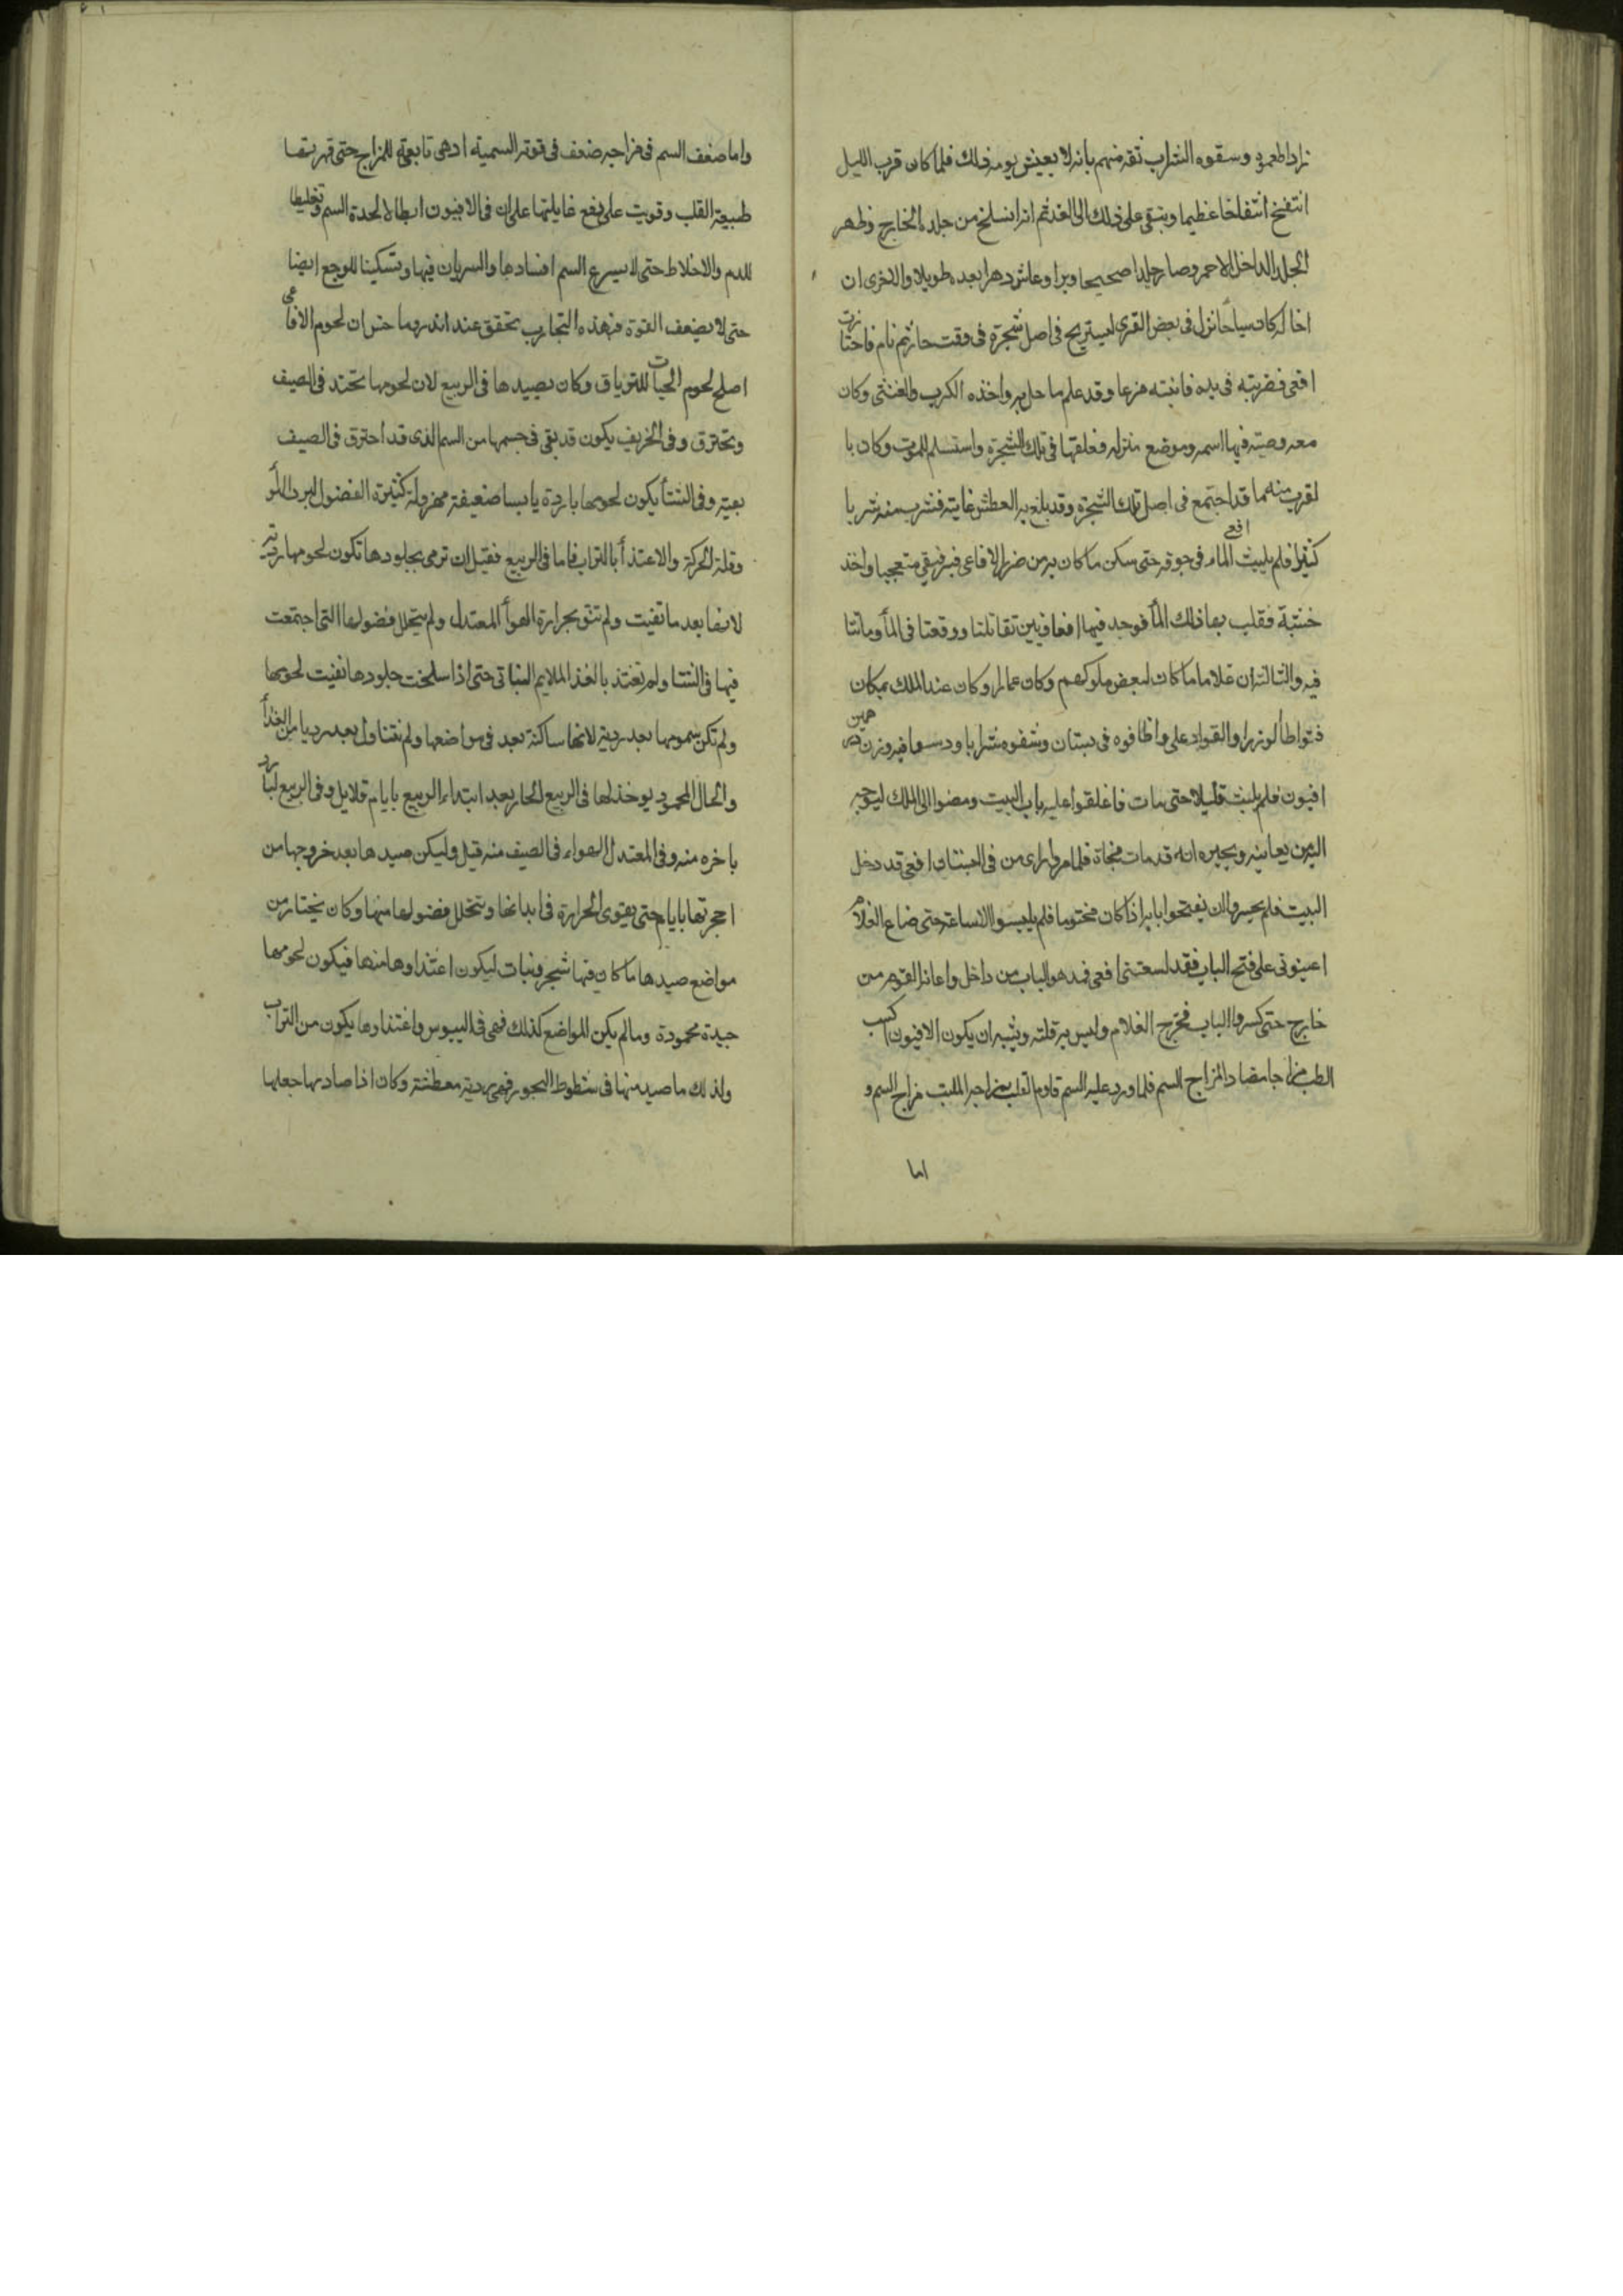 زادا طعمود وسقوه الشراب ثقه منهم بانه لا يعيش يومه ذلك فلما كان قرب الليل
انتفخ انتفاخا عظيما وبقى على ذلك الى الغد ثم انه انسلخ من جلده الخارج وظهر
الجلد الداخل الاحمر وصار جلدا صحيحا وبرا وعاش دهرا بعده طويلا والاخرى ان
اخا له كان سياحا نزل فى بعض القرى ليستريح فى اصل شجرة فى وقت حار ثم نام فاجتازت
افعى فضربته فى يده فانتبه فزعا وقد علم ما حل به واخذه الكرب والغشى وكان
معه وصيته فيها اسمه وموضع منزله فعلقها فى تلك الشجرة واستسلم للموت وكان با
لقرب منه ما قد اجتمع فى اصل تلك الشجرة وقد بلغ به العطش غايته فشرب منه شربا
كثيرا فلم يلبث الماء فى جوفه حتى سكن ما كان به من ضرر الافاعى فبقى متعجبا واخذ
خشبة فقلب بها ذلك المأ فوجد فيها افعى افعاوين تقاتلتا ووقعتا فى المأ وماتتا
فيه والثالثة ان غلاما ما كان لبعض ملوكهم وكان عما لم وكان عند الملك بمكان
فتواطأ الوزرا والقواد على واظافوه فى بستان وسقوه شرابا ودسوا فيه وزن درهمين
افيون فلم يلبث قليلا حتى مات فاغلقوا عليه باب البيت ومضوا الى الملك ليوجه
اليه من يعاينه ويخبره انه قد مات فجاة فلما مروا راى من فى البستان افعى قد دخل
البيت فلم يجسروا ان يفتحوا بابه اذ كان مختوما فلم يلبسوا الا ساعة حتى صاح الغلام
اعينونى على فتح الباب فقد لسعتنى افعى فمد هو الباب من داخل واعانه القوم من
خارج حتى كسروا الباب فخرج الغلام وليس به قلته ويشبه ان يكون الافيون كسب
القلب مزاجا مضادا لمزاج السم فلما ورد عليه السم قاوم القلب بمزاجه المكتسب مزاج السم و
اما
واما ضعف السم فى مزاجه ضعف فى قوته السمية اذ هى تابعة للمزاج حتى قهرتها
طبيعة القلب وقويت على دفع غايلتها على ان فى الافيون ابطالا لحدة السم وتغليظا
للدم والاخلاط حتى لا يسرع السم افسادها والسريان فيها وتسكينا للوجع ايضا
حتى لا يضعف القوة فبهذه التجارب تحقق عند اندروماخس ان لحوم الافاعى
اصلح لحوم الحيات للترياق وكان يصيدها فى الربيع لان لحومها تحتد فى الصيف
وتحترق وفى الخريف يكون قد بقى فى جسمها من السم الذى قد احترق فى الصيف
بقية وفى الشتأ يكون لحومها باردة يابسا ضعيفة مهزولة كثيرة الفضول لبرد الهوأ
وقلة الحركة والاغتذأ بالتراب فاما فى الربيع فقبل ان ترمى بجلودها تكون لحومها ردية
لانها بعد ما نقيت ولم تنق بحرارة الهوأ المعتدل ولم يتحلل فضولها التى اجتمعت
فيها فى الشتا ولم تغتذ بالغذا الملايم النباتى حتى اذا سلخت جلودها نقيت لحومها
ولم تكن سمومها بعد ردية لانها ساكنة بعد فى مواضعها ولم تتناول بعد رديا من الغذأ
والحال المحمود يوخذ لها فى الربيع الحار بعد ابتداء الربيع بايام قلايل وفى الربيع البارد
باخره منه وفى المعتدل الهواء فالصيف منه قبل وليكن صيدها بعد خروجها من
اجحرتها بايام حتى يقوى الحرارة فى ابدانها ويتحلل فضولها منها وكان يختار من
مواضع صيدها ما كان فيها شجر ونبات ليكون اغتذاوها منها فيكون لحومها
جيدة محمودة وما لم يكن المواضع كذلك فهى فى اليبوس واغتذاوها يكون من التراب
ولذلك ما صيد منها فى شطوط البحور فهى ردية معطشة وكان اذا صادها جعلها